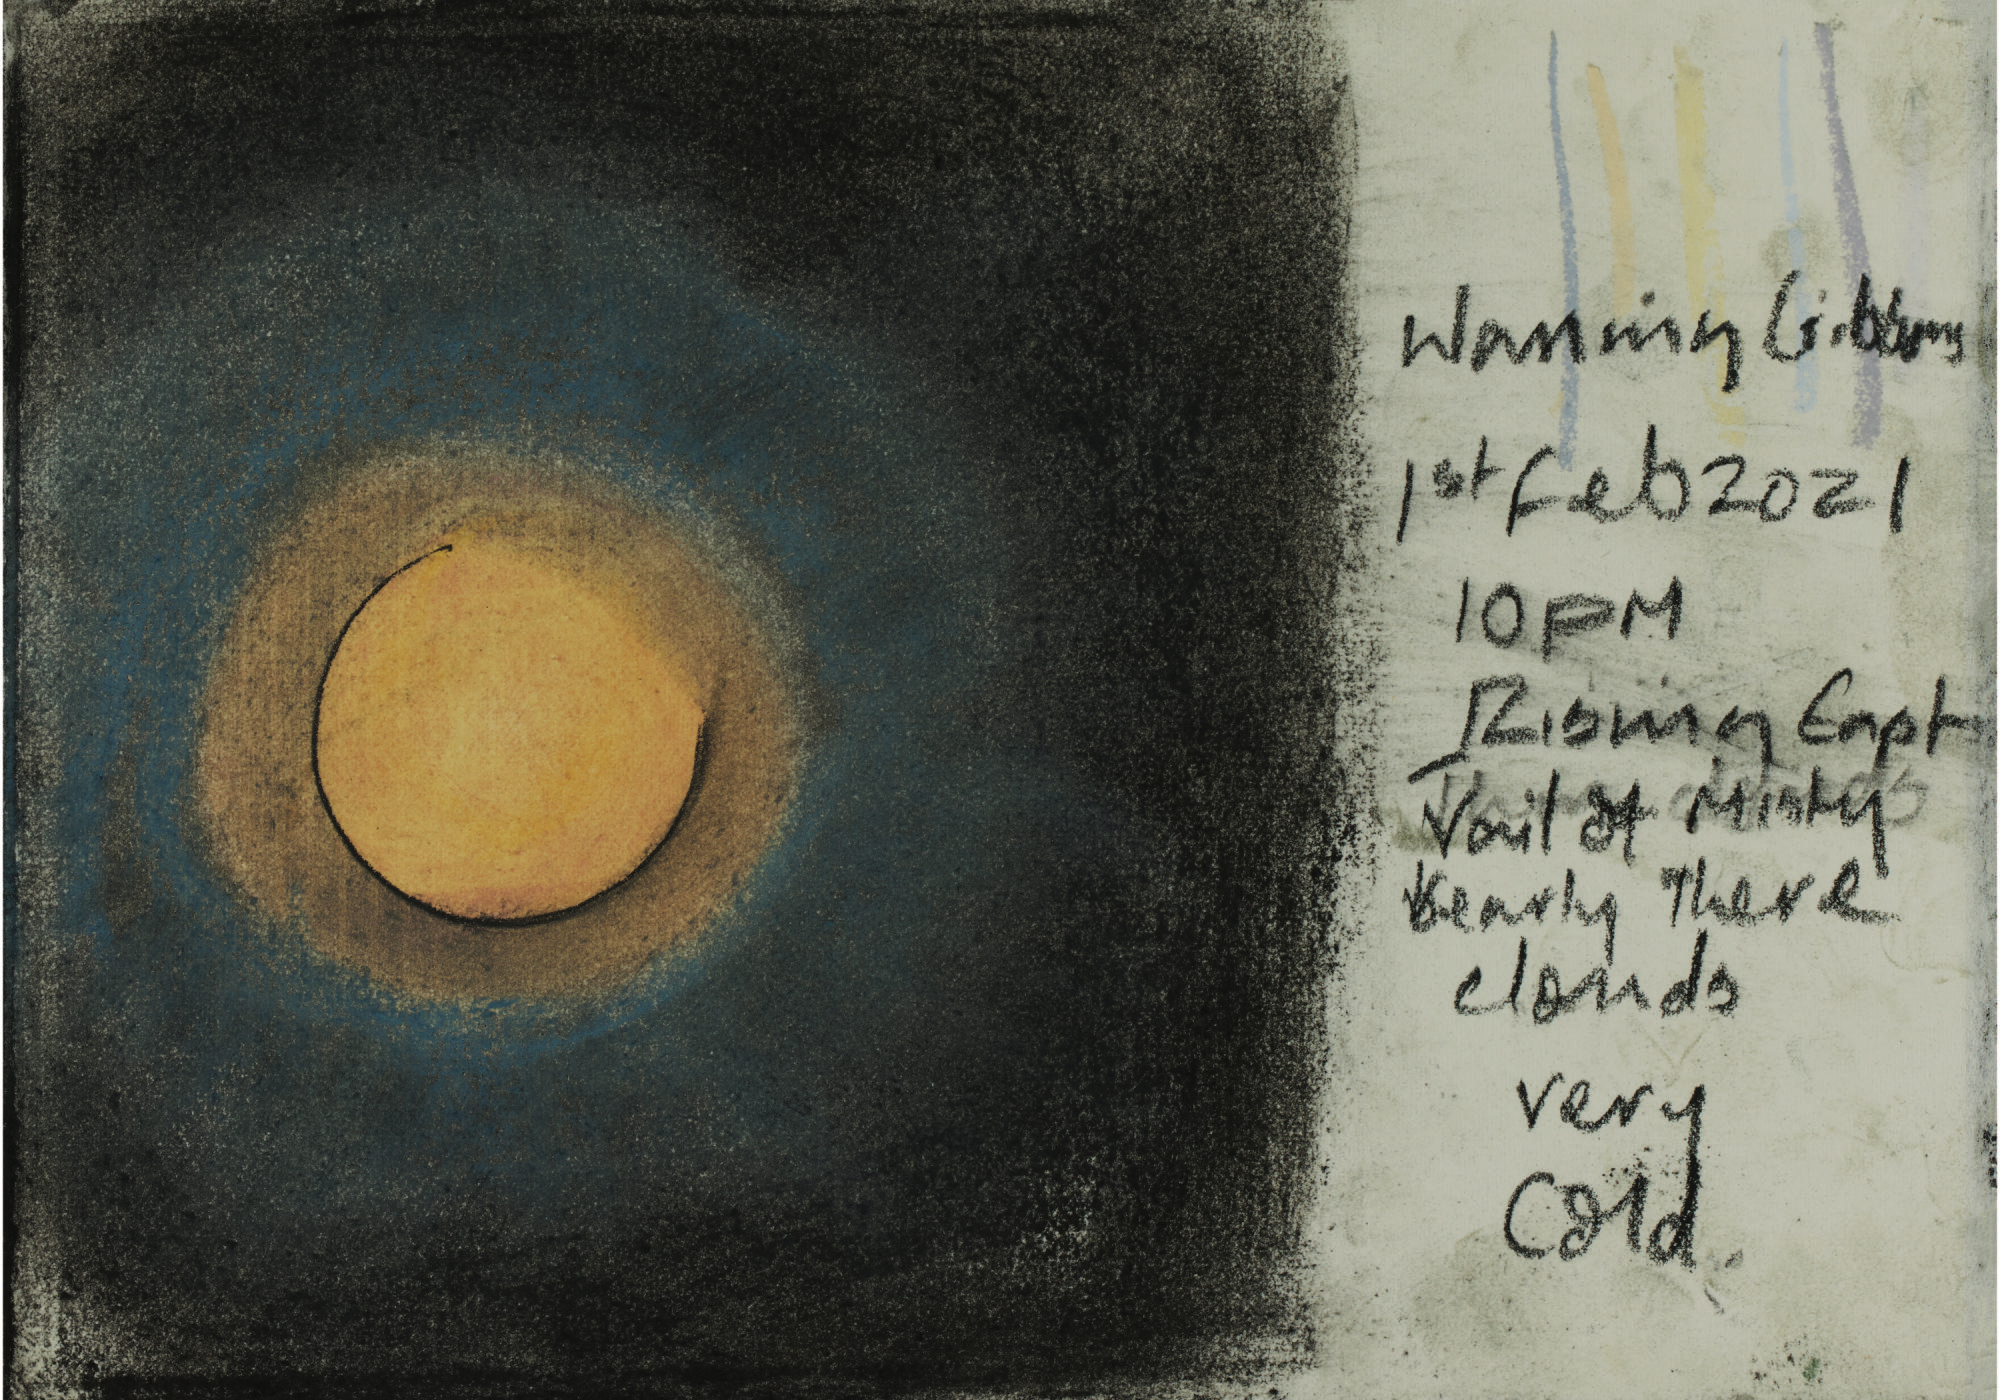 Wanning Gibbous
1st Feb 2021
10PM
Rising East
Vail of Misty
Bearly There
clouds
very
Cold.